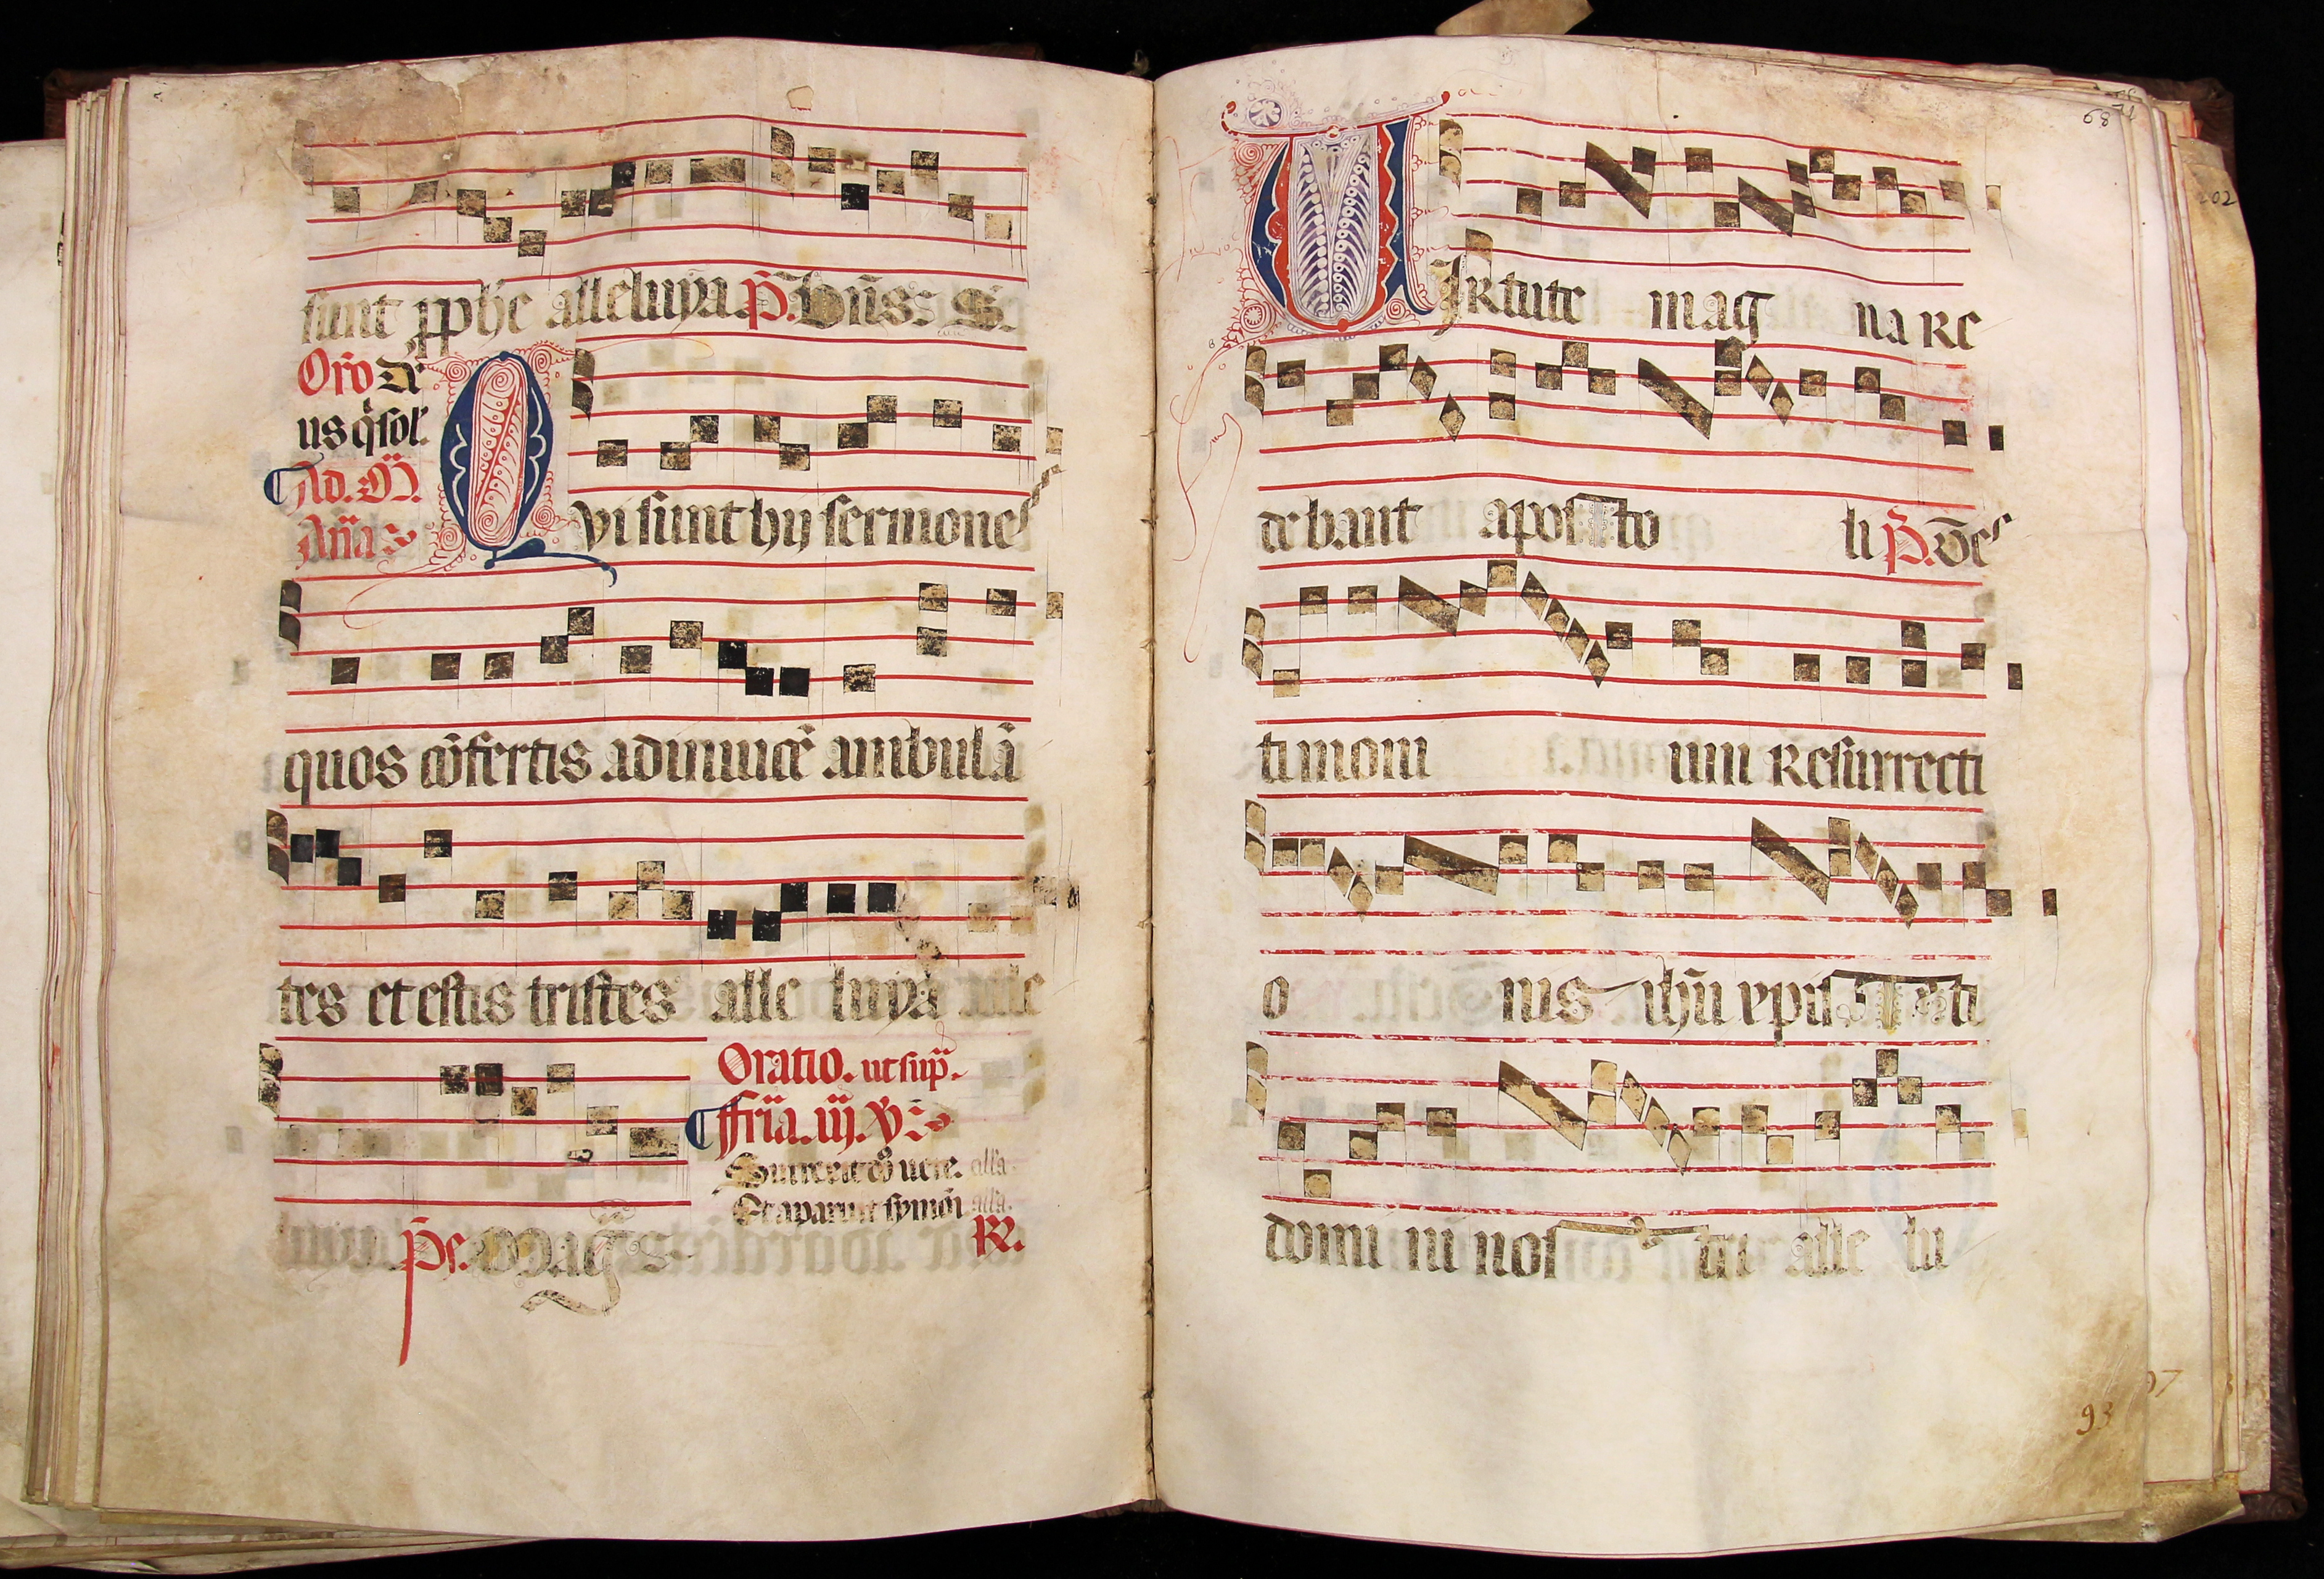 sunt pphe alleluya P. Bñs: S.
Oro De
us q̃sol'.
Ad. M.
Aña
Qvi sunt hij sermones
quos cõfertis adinuicẽ ambulã
tes et estis tristes alle luya alle
Oratio. ut sup̃.
ffria. iij. V
Surrexit dñs uere. alla.
Et aparuit symõi alla.
R.
Ps. Mag̃
68
VIRtute mag na Re
debant apos to li P. Des
timoni um Resurrecti
o nis ihũ xpis ti
domi ni nos tri alle lu
93
202
97